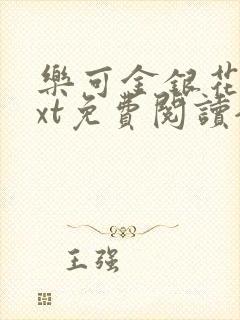 樂可金銀花
xt免費閱讀
王强